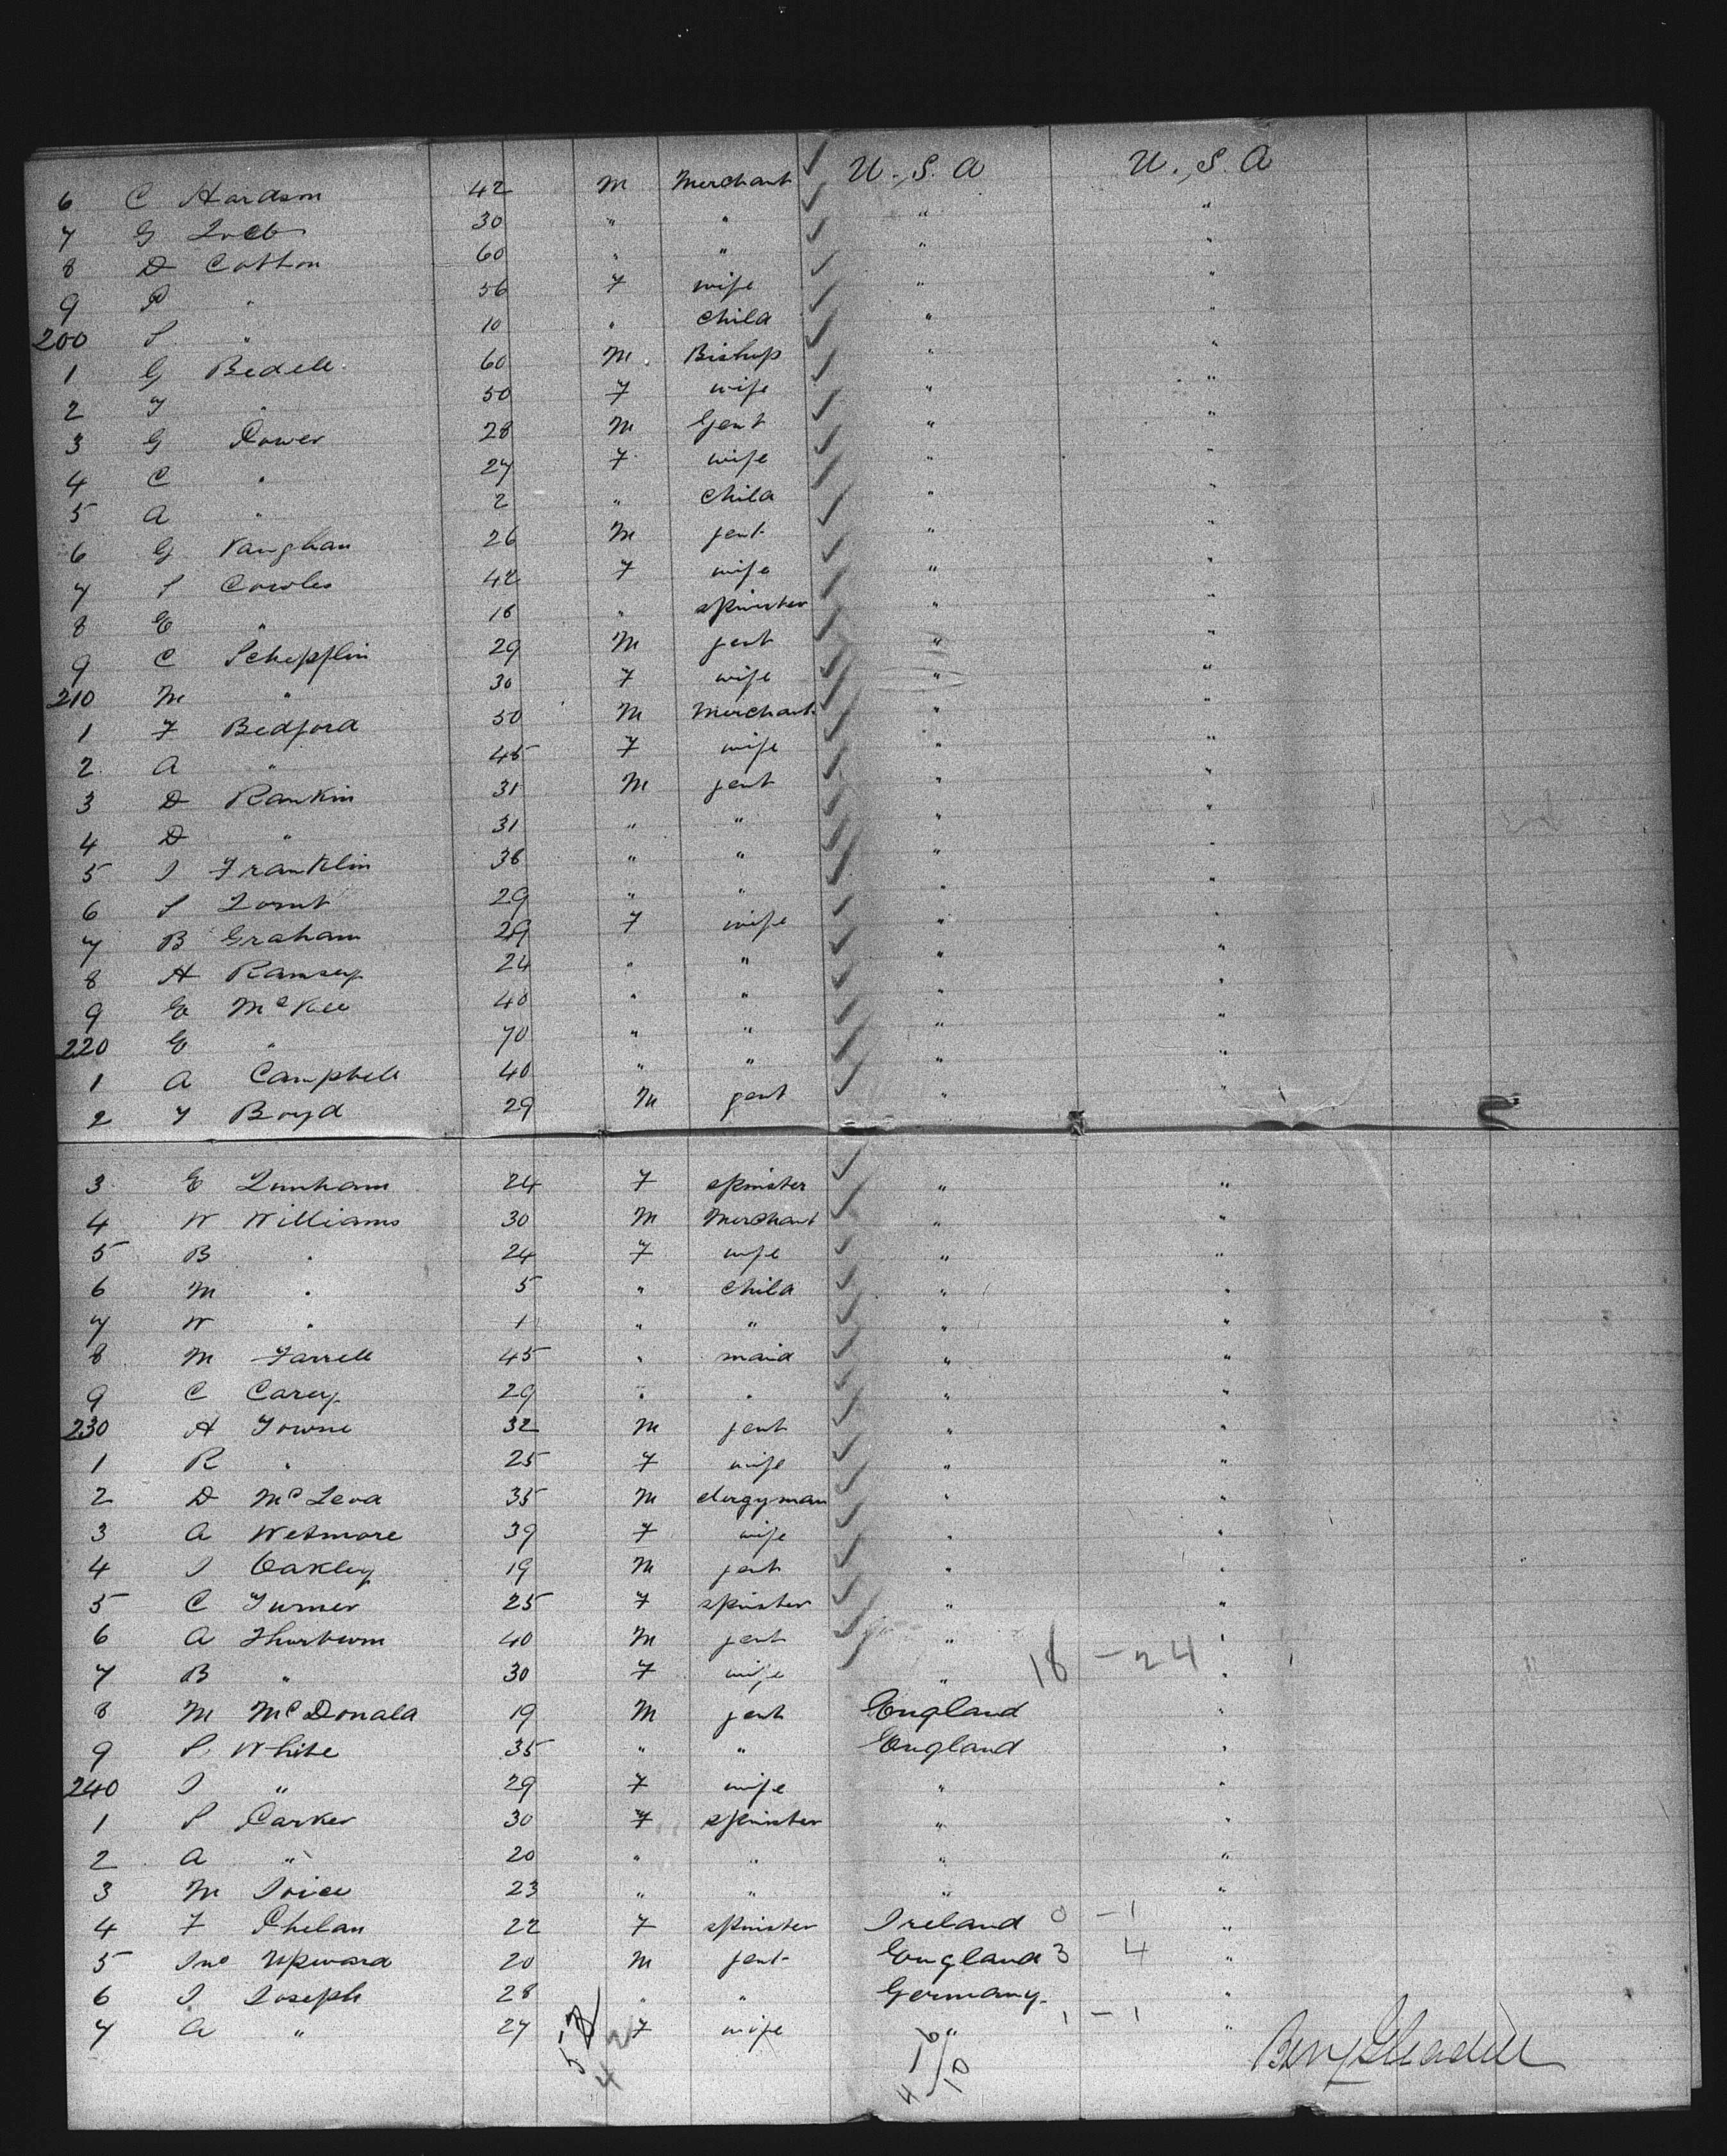 6 C Hardson 42 M Merchant ✓ U.S.A U.S.A
7 G Loeb 30 " " ✓ " "
8 D Cotton 60 " " ✓ " "
9 P " 56 F wife ✓ " "
200 S " 10 " child ✓ " "
1 G Bedell 60 M Bishop ✓ " "
2 J " 50 F wife ✓ " "
3 G Power 28 M Gent ✓ " "
4 C " 27 F wife ✓ " "
5 A " 2 " child ✓ " "
6 G Vaughan 26 M gent ✓ " "
7 S Cowles 42 F wife ✓ " "
8 E " 18 " spinster ✓ " "
9 C Schepflin 29 M gent ✓ " "
210 M " 30 F wife ✓ " "
1 F Bedford 50 M Merchant ✓ " "
2 A " 45 F wife ✓ " "
3 D Rankin 31 M gent ✓ " "
4 D " 31 " " ✓ " "
5 J Franklin 38 " " ✓ " "
6 S 29 " " ✓ " "
7 B Graham 29 F wife ✓ " "
8 H Ramsey 24 " " ✓ " "
9 E McKee 48 " " ✓ " "
220 E " 70 " " ✓ " "
1 A Campbell 40 " " ✓ " "
2 J Boyd 29 M gent ✓ " "
3 E Dunham 24 F spinster ✓ " "
4 W Williams 30 M Merchant ✓ " "
5 B " 24 F wife ✓ " "
6 M " 5 " child ✓ " "
7 W " 1 " " ✓ " "
8 M Farrell 45 " maid ✓ " "
9 C Carey 29 " " ✓ " "
230 H Towne 32 M gent ✓ " "
1 R " 25 F wife ✓ " "
2 D McLeod 35 M clergyman ✓ " "
3 A Wetmore 39 F wife ✓ " "
4 J Oakley 19 M gent ✓ " "
5 C Turner 25 F spinster ✓ " "
6 A Thorburn 40 M gent ✓ " "
7 B " 30 F wife ✓ " 18 - 24 "
8 M McDonald 19 M gent England "
9 S White 35 " " England "
240 J " 29 F wife " "
1 S Parker 30 F spinster " "
2 A " 20 " " " "
3 M 23 " " " "
4 F Phelan 22 F spinster Ireland 0 - 1 "
5 Jno Upward 20 M gent England 3 4 "
6 J Joseph 28 " " Germany "
7 A " 27 F wife " 1 - 1 "